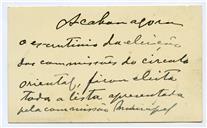 Acaba agora
o escrutinio da eleição
das commissões do circulo
oriental, foi eleita
toda a lista apresentada
pela commissão Municipal